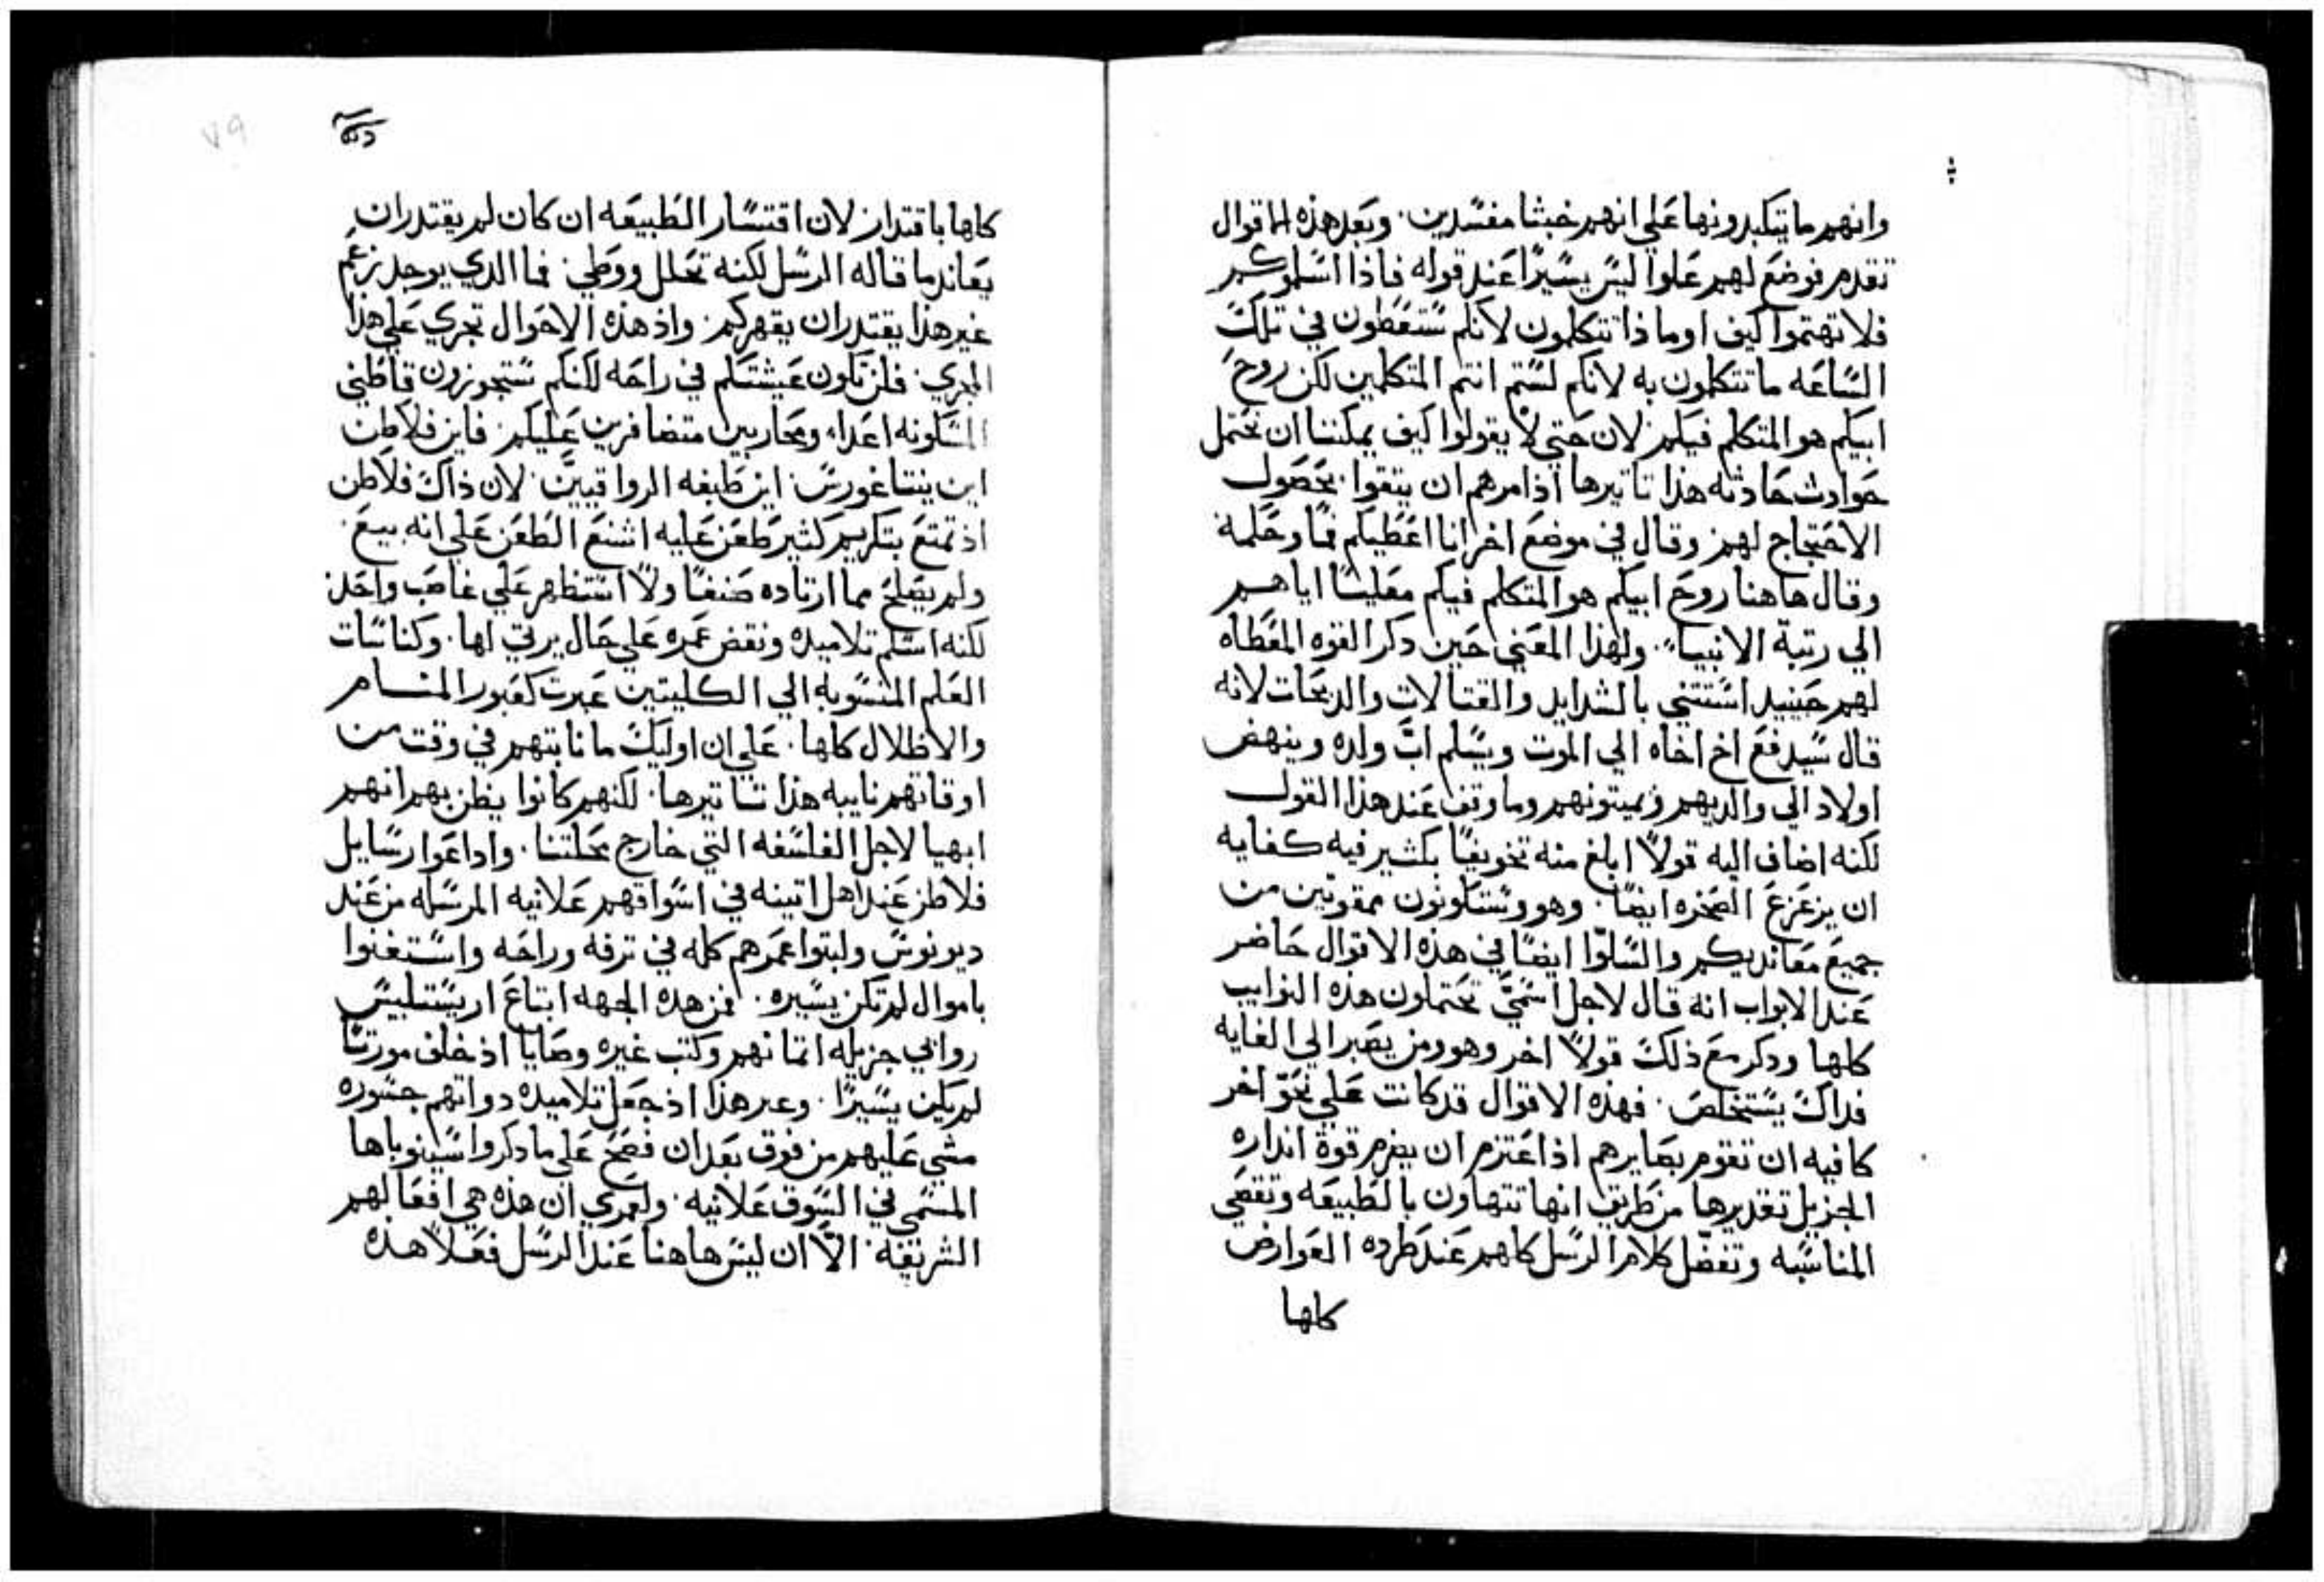 وانهم ما يتكبدونها علي انهم خبثا مفسدين. وبعد هذه الاقوال
تقدم فوضع لهم علوا ليس يسيرا عند قوله فاذا اسلموكم
فلا تهتموا كيف او ماذا تتكلمون لانكم ستعطون في تلك
الساعه ما تتكلمون به لانكم لستم انتم المتكلمين لكن روح
ابيكم هو المتكلم فيكم. لان حتي لا يقولوا كيف يمكننا ان نحتمل
حوادث حادثه هذا تاتيرها اذا مرهم ان يتقوا بحصول
الاحتجاج لهم. وقال في موضع اخر انا اعطيكم فما وحكمة
وقال هاهنا روح ابيكم هو المتكلم فيكم معليا اياهم
الي رتبة الانبياء. ولهذا المعني حين دكر القوه المعطاه
لهم حينيد استتني بالشدايد والقتالات والدبحات لانه
قال سيدفع اخ اخاه الي الموت ويسلم اب ولده وينهض
اولاد الي والديهم ويميتونهم وما وقف عند هذا القول
لكنه اضاف اليه قولا ابلغ منه تخويفا بكثير فيه كفايه
ان يزعزع الصخره ايضا. وهو وستكونون ممقوتين من
جميع معانديكم والسلوا ايضا في هذه الاقوال حاضر
عند الابواب انه قال لاجل اسمي تحتملون هذه النوايب
كلها ودكر مع ذلك قولا اخر وهو ومن يصبر الي الغايه
فداك يستخلص. فهذه الاقوال قد كانت علي نحو اخر
كافيه ان تقوم بصايرهم اذ اعتزم ان يضرم قوة انداره
الجزيل تقديرها من طريق انها تتهاون بالطبيعه وتقصي
المناسبه وتفضل كلام الرسل كلهم عند طرده العوارض
كلها
٧٩
كلها باقتدار. لان اقتسار الطبيعه ان كان لم يقتدر ان
يعاند ما قاله الرسل لكنه تحلل ووطي. فما الدي يوجد زعم
غير هذا يقتدر ان يقهركم. واذ هذه الاحوال تجري علي هذا
المجري. فلن تكون عيشتكم في راحه لكنكم ستجوزون قاطني
المسكونه اعداء ومحاربين متضافرين عليكم. فاين فلاطن
اين بيتاغورس. اين طبقه الرواقيين. لان ذاك فلاطن
اذ تمتع بتكريم كثير طعن عليه اشنع الطعن علي انه بيع
ولم يصلح مما ارتاده صنفا ولا استظهر علي غاصب واحد.
لكنه اسلم تلاميده ونقض عمره علي حال يرتي لها. وكناسات
العلم المنسوبه الي الكلبيين عبرت كعبور المنام
والاظلال كلها. علي ان اوليك ما نابتهم في وقت من
اوقاتهم نايبه هذا تاتيرها. لكنهم كانوا يظن بهم انهم
ابهيا لاجل الفلسفه التي خارج محلتنا. واداعوا رسايل
فلاطن عند اهل اتينه في اسواقهم علانيه المرسله من عند
ديونوس ولبتوا عمرهم كله في ترفه وراحه واستغنوا
باموال لم تكن يسيره. فمن هده الجهه ابتاع اريستلبيس
رواني جزيله اتمانهم وكتب غيره وصايا اذ خلف مورتا
لم يكن يسيرا. وعبر هذا اذ جعل تلاميده دواتهم جسوره
مشي عليهم من فوق بعد ان فصح علي ما دكروا سينوباها
المسمي في السوق علانيه. ولعمري ان هذه هي افعالهم
الشريفه. الا ان ليس هاهنا عند الرسل فعلا هده